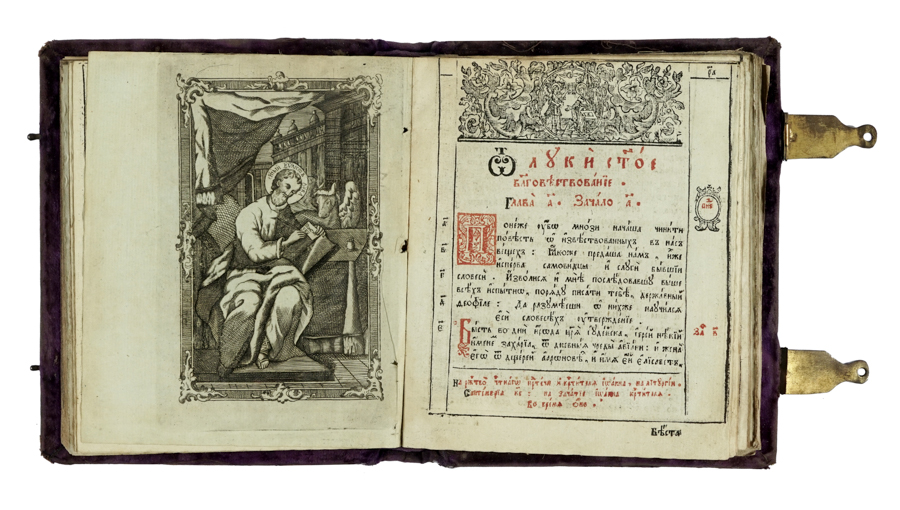 Ѿ лꙋки́ ст҃о́е
бл҃гове́ствованїе .
Глава̀ а҃ . Зача́ло а҃ .
Поне́же ᲂу҆́бѡ мно́зи нача́ша чини́ти
по́вѣсть ѡ҆ и҆звѣ́ствованныхъ въ на́съ
ве́щехъ : ꙗ҆́коже преда́ша на́мъ , и҆̀же
и҆спе́рва самови́дцы и҆ слꙋги̑ бы́вшїи
словесѝ . И҆зво́лисѧ и҆ мнѣ̀ послѣ́довавшꙋ вы́ше
всѣ̑хъ и҆спы́тнѡ , порѧ́дꙋ писа́ти тебѣ̀ , держа́вный
Ѳео́филе : Да разꙋмѣ́еши ѡ҆ ни́хже наꙋчи́лсѧ
є҆сѝ словесѣ́хъ ᲂу҆твержде́нїе .
Бы́сть во дни̑ и҆́рѡда цр҃ѧ̀ і҆ꙋде́йска , і҆ере́й нѣ́кїй
и҆́менемъ заха́рїа , ѿ дне́вныѧ чреды̀ а҆вїа́ни : и҆ жена̀
є҆гѡ̀ ѿ дще́рей а҆арѡ́новѣхъ , и҆ и҆́мѧ є҆́й є҆лїсаве́тъ .
За҃ в҃
На ржⷭ҇тво̀ чⷭ҇тна́гѡ прⷣте́чи и҆ крⷭ҇ти́телѧ і҆ѡа́нна , на лїтꙋргі́и .
Септе́мврїа кг҃ : на зача́тїе і҆ѡа́нна крⷭ҇ти́телѧ .
Во вре́мѧ ѻ҆́но .
Бѣ́ста